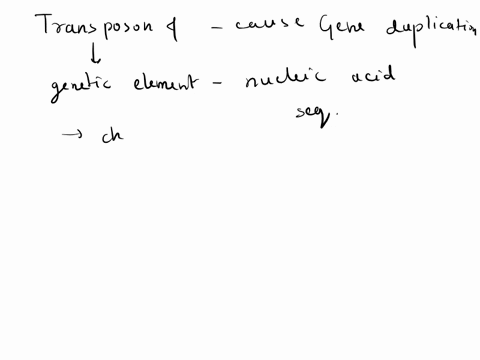 Transposon & - cause Gene duplication
genetic element - nucleic acid
seq.
→ ch